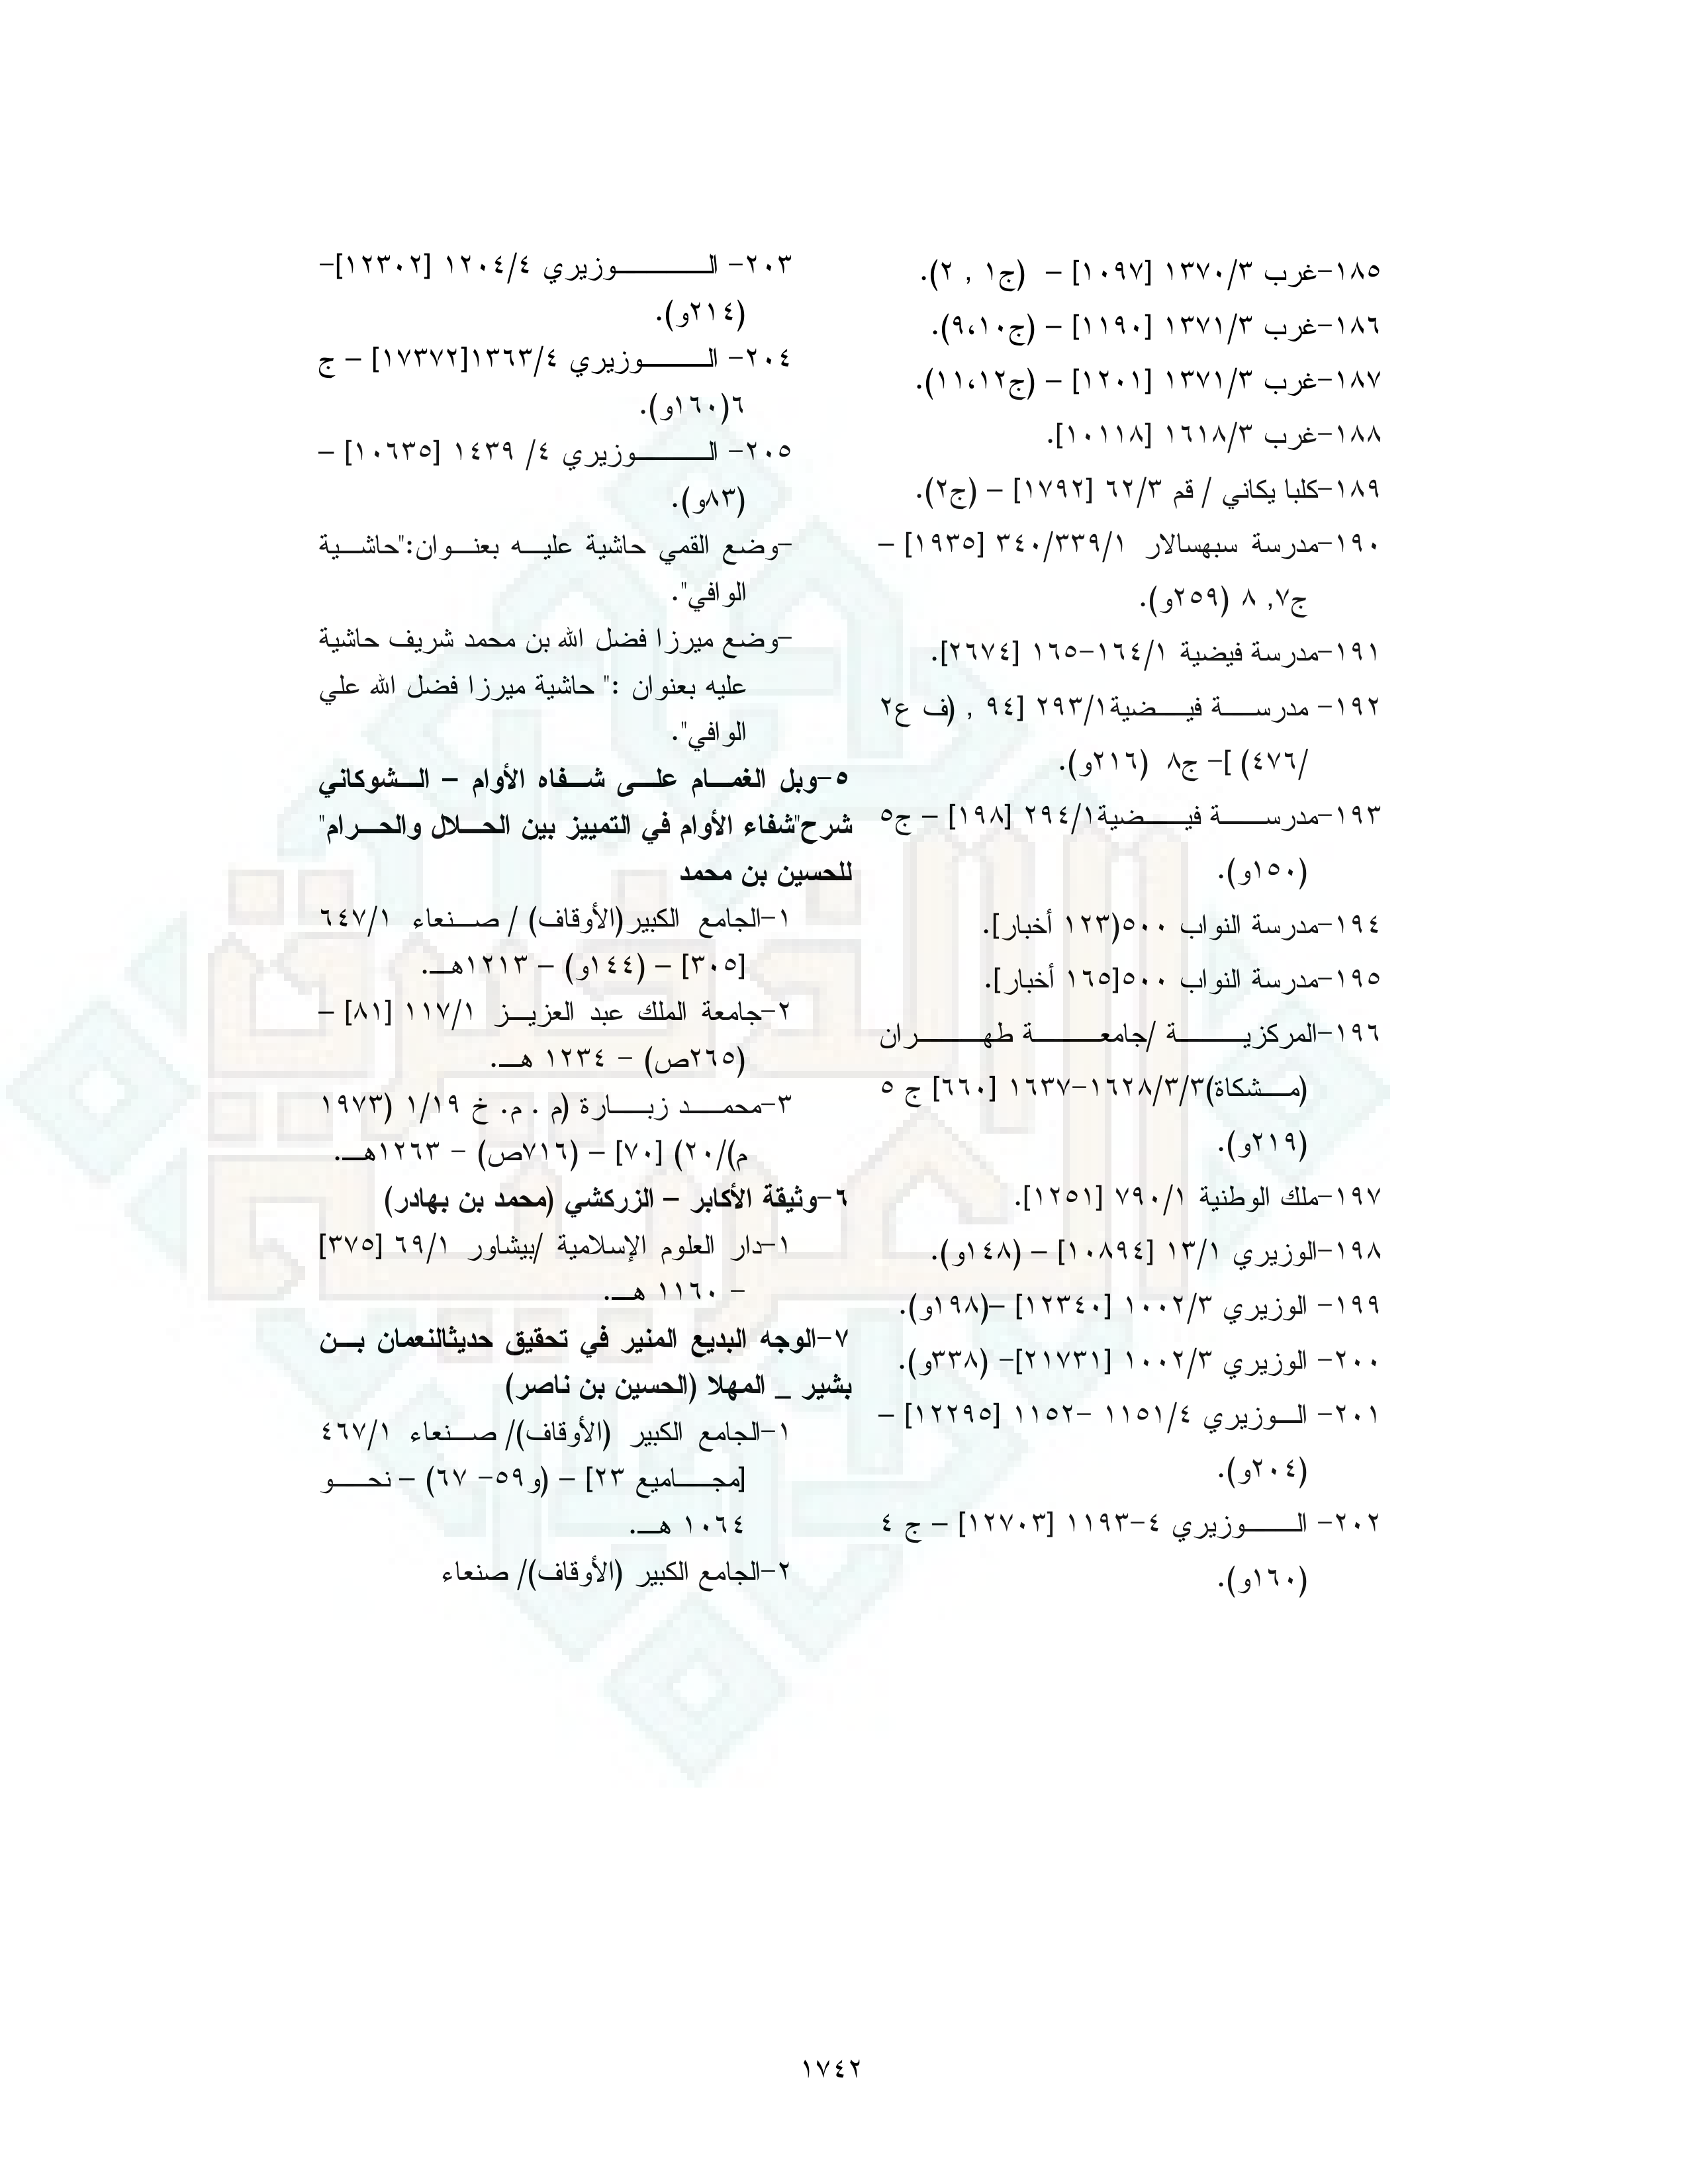 ١٨٥-غرب ١٣٧٠/٣ [١٠٩٧] – (ج١ , ٢).
١٨٦-غرب ١٣٧١/٣ [١١٩٠] – (ج٩،١٠).
١٨٧-غرب ١٣٧١/٣ [١٢٠١] – (ج١١،١٢).
١٨٨-غرب ١٦١٨/٣ [١٠١١٨].
١٨٩-كلبا يكاني / قم ٦٢/٣ [١٧٩٢] – (ج٢).
١٩٠-مدرسة سبهسالار ٣٤٠/٣٣٩/١ [١٩٣٥] –
ج٧, ٨ (٢٥٩و).
١٩١-مدرسة فيضية ١٦٤/١-١٦٥ [٢٦٧٤].
١٩٢- مدرسة فيضية٢٩٣/١ [٩٤ , (ف ع٢
/٤٧٦) ]– ج٨ (٢١٦و).
١٩٣-مدرسة فيضية٢٩٤/١ [١٩٨] – ج٥
(١٥٠و).
١٩٤-مدرسة النواب ٥٠٠(١٢٣ أخبار].
١٩٥-مدرسة النواب ٥٠٠[١٦٥ أخبار].
١٩٦-المركزية /جامعة طهران
(مشكاة)١٦٢٨/٣/٣-١٦٣٧ [٦٦٠] ج ٥
(٢١٩و).
١٩٧-ملك الوطنية ٧٩٠/١ [١٢٥١].
١٩٨-الوزيري ١٣/١ [١٠٨٩٤] – (١٤٨و).
١٩٩- الوزيري ١٠٠٢/٣ [١٢٣٤٠] –(١٩٨و).
٢٠٠- الوزيري ١٠٠٢/٣ [٢١٧٣١]– (٣٣٨و).
٢٠١- الوزيري ١١٥١/٤ -١١٥٢ [١٢٢٩٥] –
(٢٠٤و).
٢٠٢- الوزيري ٤-١١٩٣ [١٢٧٠٣] – ج ٤
(١٦٠و).
٢٠٣- الوزيري ١٢٠٤/٤ [١٢٣٠٢]–
(٢١٤و).
٢٠٤- الوزيري ١٣٦٣/٤[١٧٣٧٢] – ج
٦(١٦٠و).
٢٠٥- الوزيري ٤/ ١٤٣٩ [١٠٦٣٥] –
(٨٣و).
-وضع القمي حاشية عليه بعنوان:"حاشية
الوافي".
-وضع ميرزا فضل الله بن محمد شريف حاشية
عليه بعنوان :" حاشية ميرزا فضل الله علي
الوافي".
٥-وبل الغمام على شفاه الأوام – الشوكاني
شرح"شفاء الأوام في التمييز بين الحلال والحرام"
للحسين بن محمد
١-الجامع الكبير(الأوقاف) / صنعاء ٦٤٧/١
[٣٠٥] – (١٤٤و) – ١٢١٣هـ.
٢-جامعة الملك عبد العزيز ١١٧/١ [٨١] –
(٢٦٥ص) – ١٢٣٤ هـ.
٣-محمد زبارة (م . م. خ ١/١٩ (١٩٧٣
م)/٢٠) [٧٠] – (٧١٦ص) – ١٢٦٣هـ.
٦-وثيقة الأكابر – الزركشي (محمد بن بهادر)
١-دار العلوم الإسلامية /بيشاور ٦٩/١ [٣٧٥]
– ١١٦٠ هـ.
٧-الوجه البديع المنير في تحقيق حديثالنعمان بن
بشير _ المهلا (الحسين بن ناصر)
١-الجامع الكبير (الأوقاف)/ صنعاء ٤٦٧/١
[مجاميع ٢٣] – (و٥٩- ٦٧) – نحو
١٠٦٤ هـ.
٢-الجامع الكبير (الأوقاف)/ صنعاء
١٧٤٢